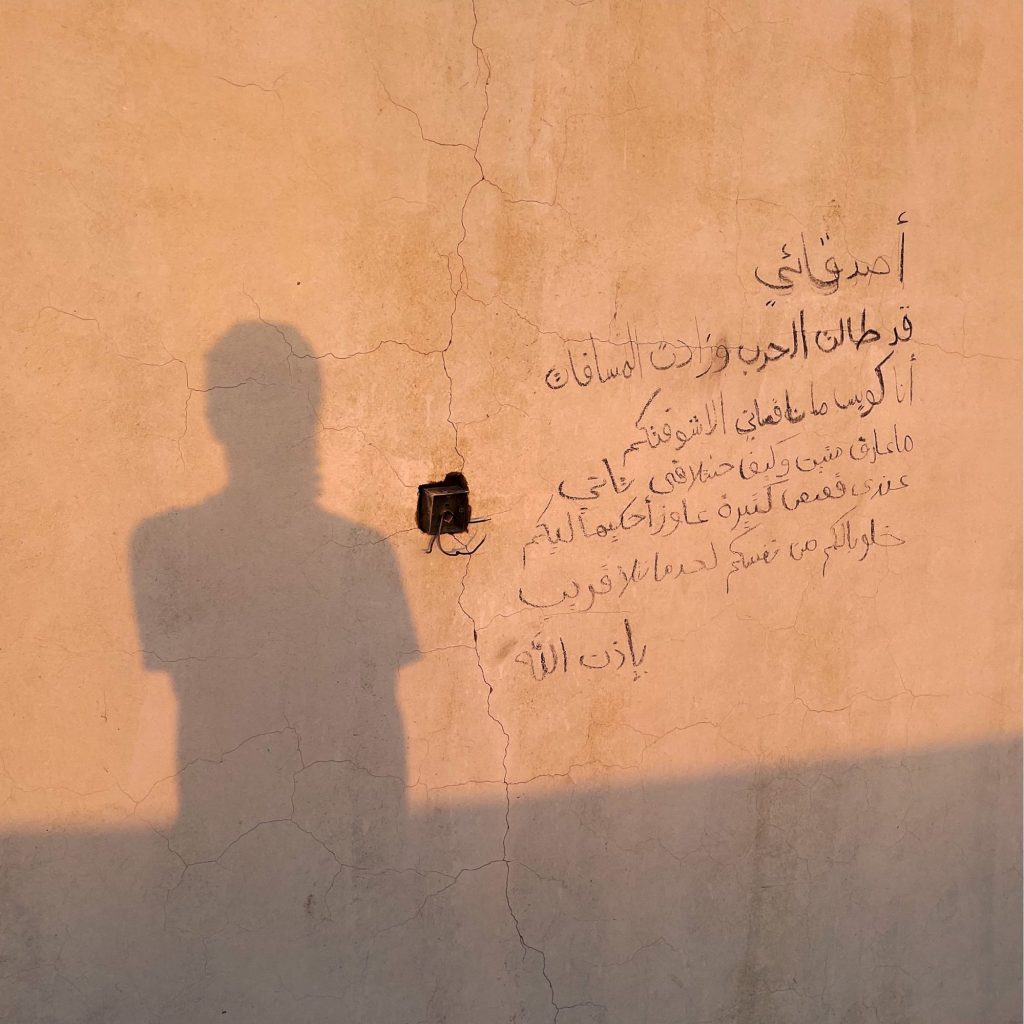 أصدقائي
قد طالت الحرب وزادت المسافات
أنا كويس ما ناقصاني الا شوفتكم
ما عارف متين وكيف حنتلاقى تاني
عندي قصص كتيرة عاوز أحكيها ليكم
خلو بالكم من نفسكم لحدما نتلاقى قريب
بإذن الله